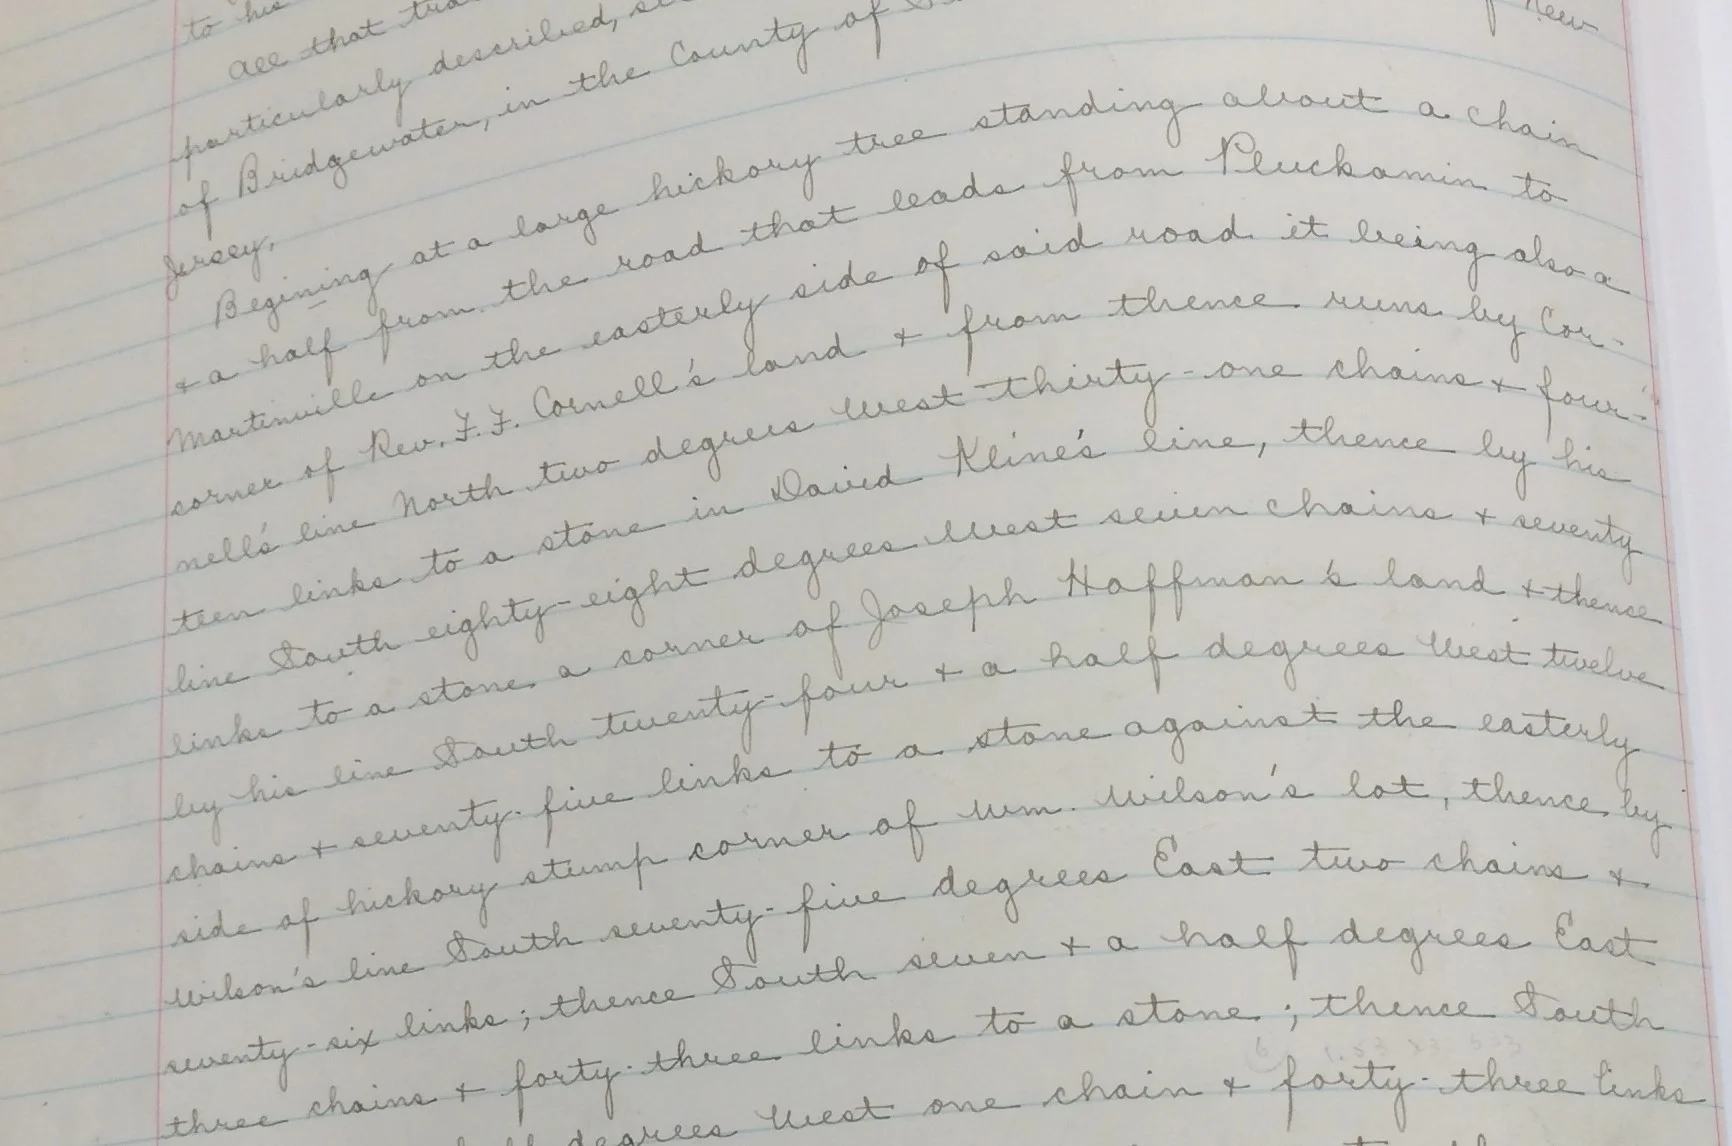 to his
all that
particularly described,
of Bridgewater, in the County of
New
Jersey,
Begining at a large hickory tree standing about a chain
+ a half from the road that leads from Pluckamin to
Martinville on the easterly side of said road it being also a
corner of Rev. F. F. Cornell's land + from thence runs by Cor-
nell's line North two degrees West thirty-one chains + four-
teen links to a stone in David Kline's line, thence by his
line South eighty-eight degrees West seven chains + seventy
links to a stone a corner of Joseph Haffman's land + thence
by his line South twenty-four + a half degrees West twelve
chains + seventy-five links to a stone against the easterly
side of hickory stump corner of Wm. Wilson's lot, thence by
Wilson's line South seventy-five degrees East two chains +
seventy-six links; thence South seven + a half degrees East
three chains + forty-three links to a stone; thence South
degrees West one chain + forty-three links